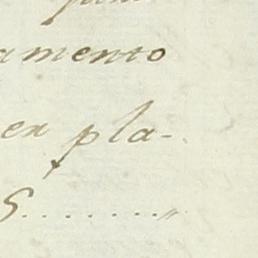 amento
en pla-
S........"